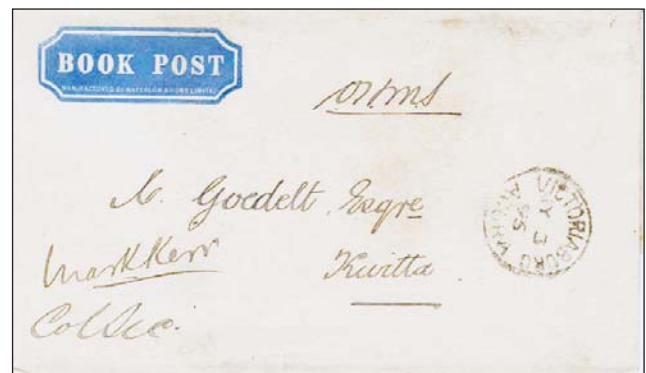 BOOK POST
MANUFACTURED BY WATERLOW & SONS LIMITED
OHMS
Goedelt Esqre
Kwitta
Mark Kerr
Col Sec.
VICTORIABORG ACCRA
MY 3
95